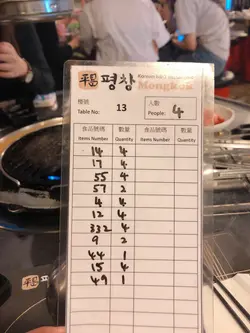 평창
Mongkok
檯號
Table No:
13
人數
People:
4
食品號碼 數量 食品號碼 數量
Items Number Quantity Items Number Quantity
14 4
17 4
55 4
57 2
4 4
12 4
332 4
9 2
44 1
15 4
49 1